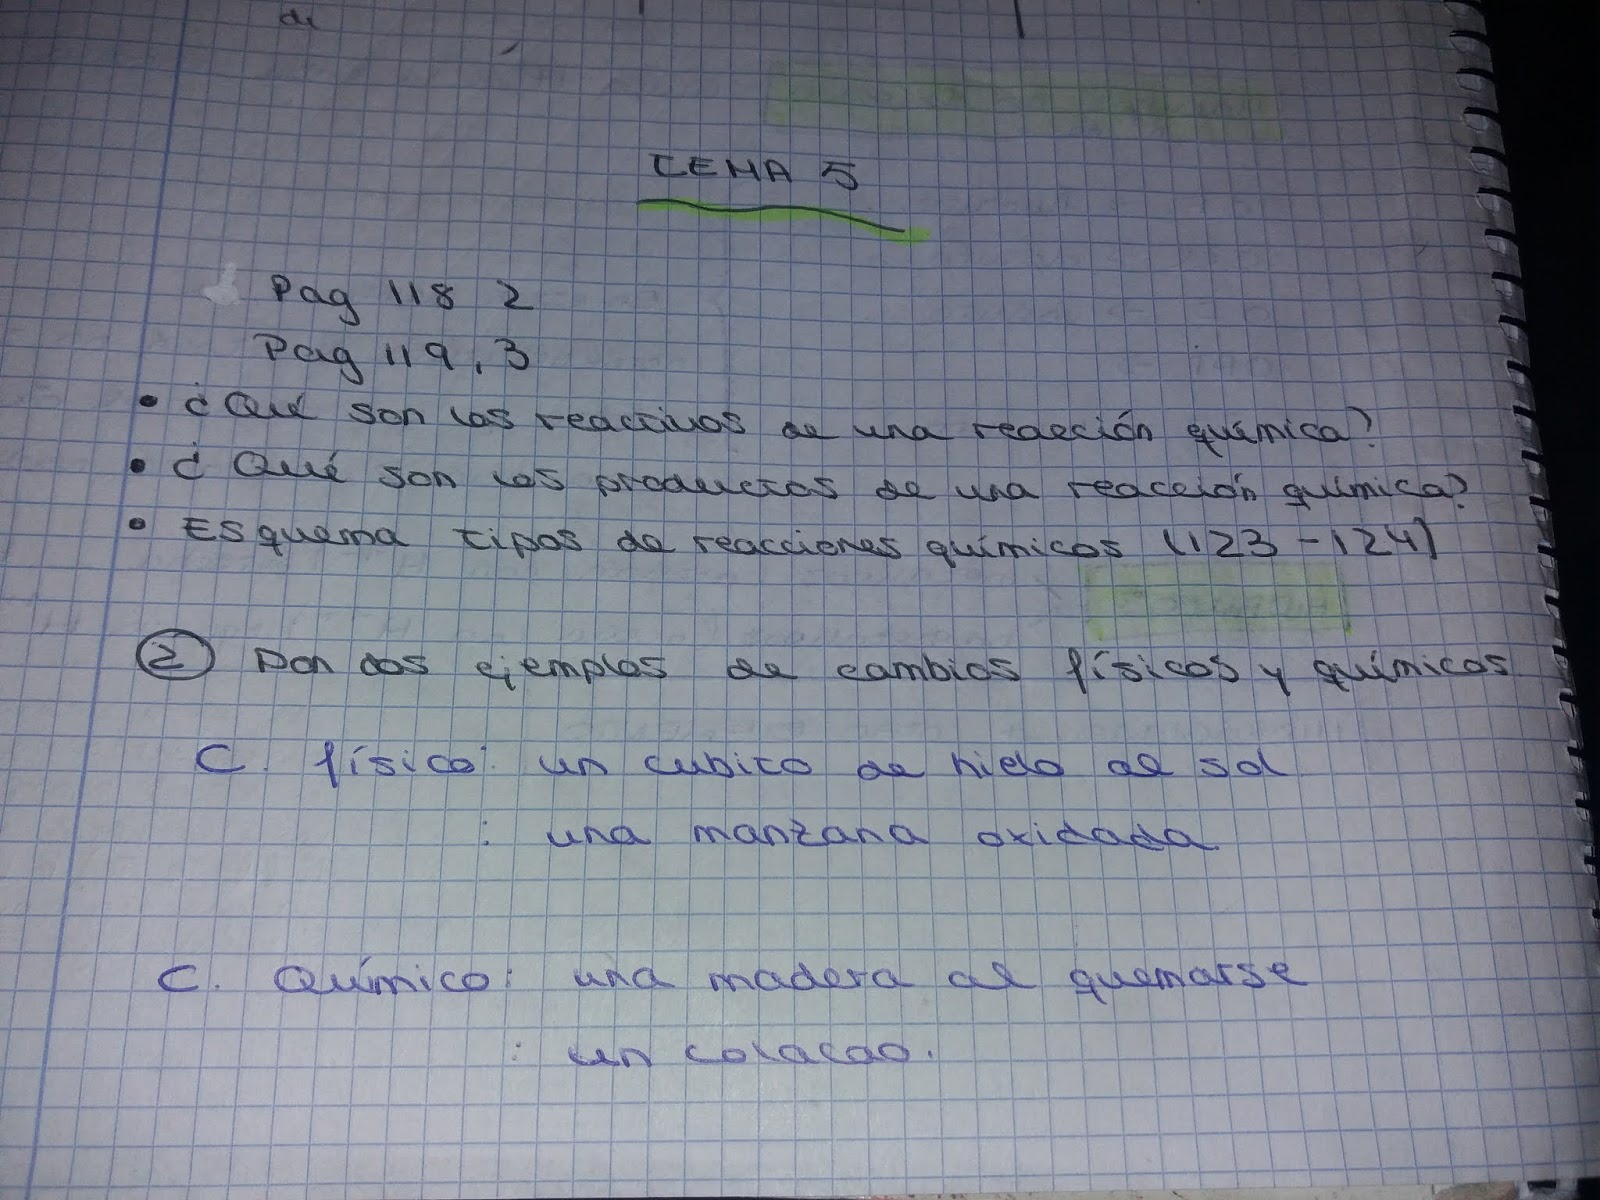 de
TEMA 5
Pag 118 2
Pag 119, 3
• ¿Qué son los reactivos de una reacción química?
• ¿Qué son los productos de una reacción química?
• Esquema tipos de reacciones químicos (123-124)
② Pon dos ejemplos de cambios físicos y químicos
C. físico: un cubito de hielo al sol
: una manzana oxidada.
C. Químico: una madera al quemarse
: un colacao.